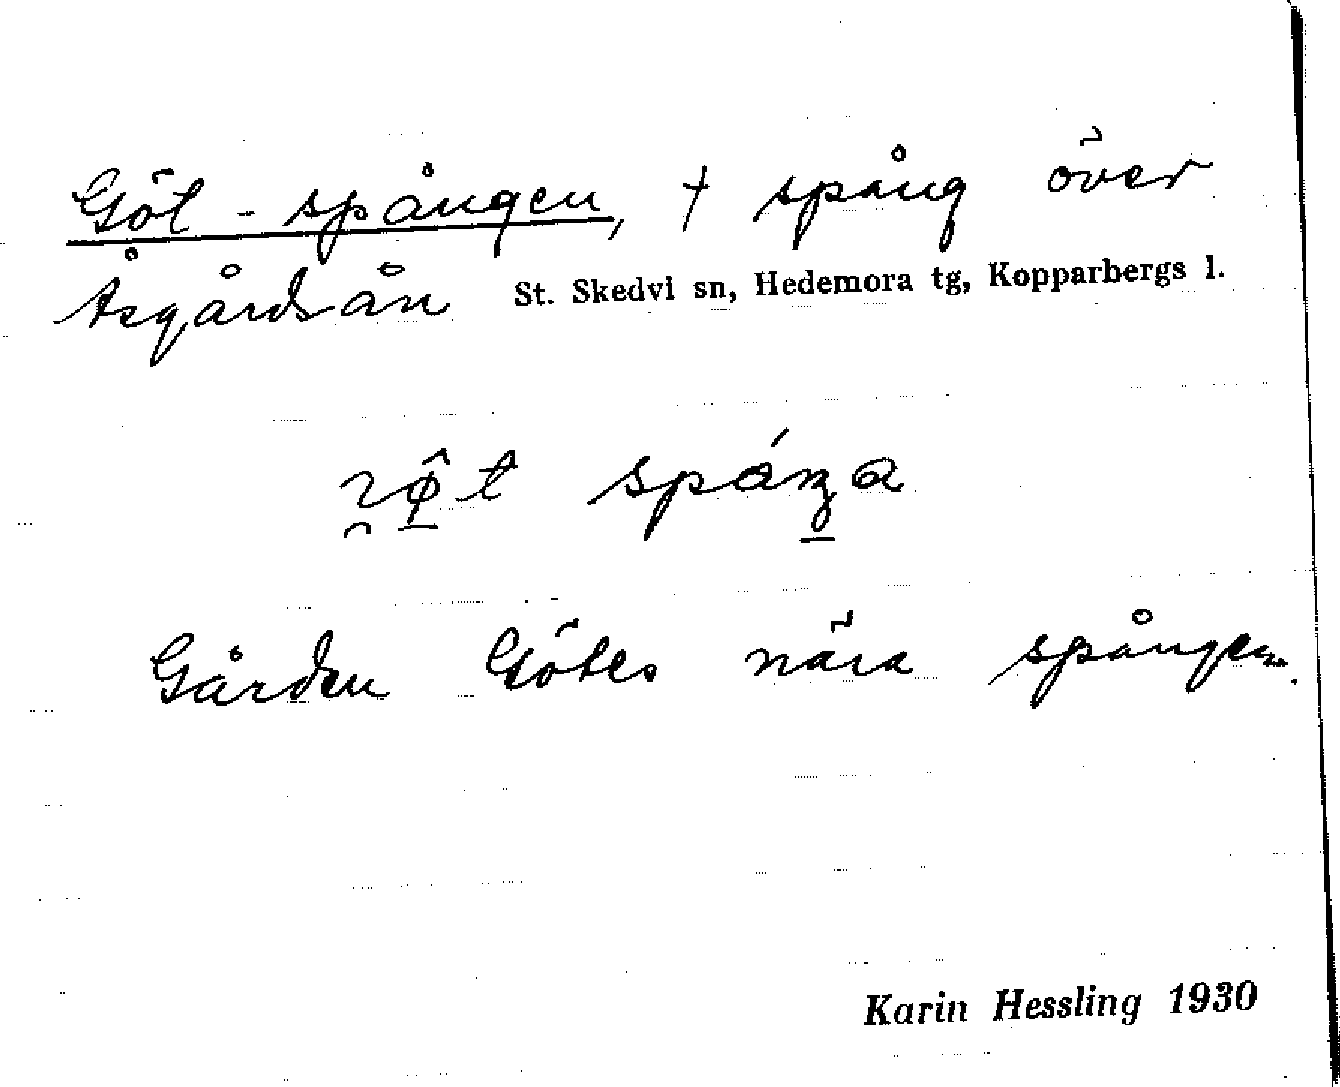 Göt-spången, † spång över
Åsgårdsån St. Skedvi sn, Hedemora tg, Kopparbergs l.
Gården Götes nära spången.
Karin Hessling 1930